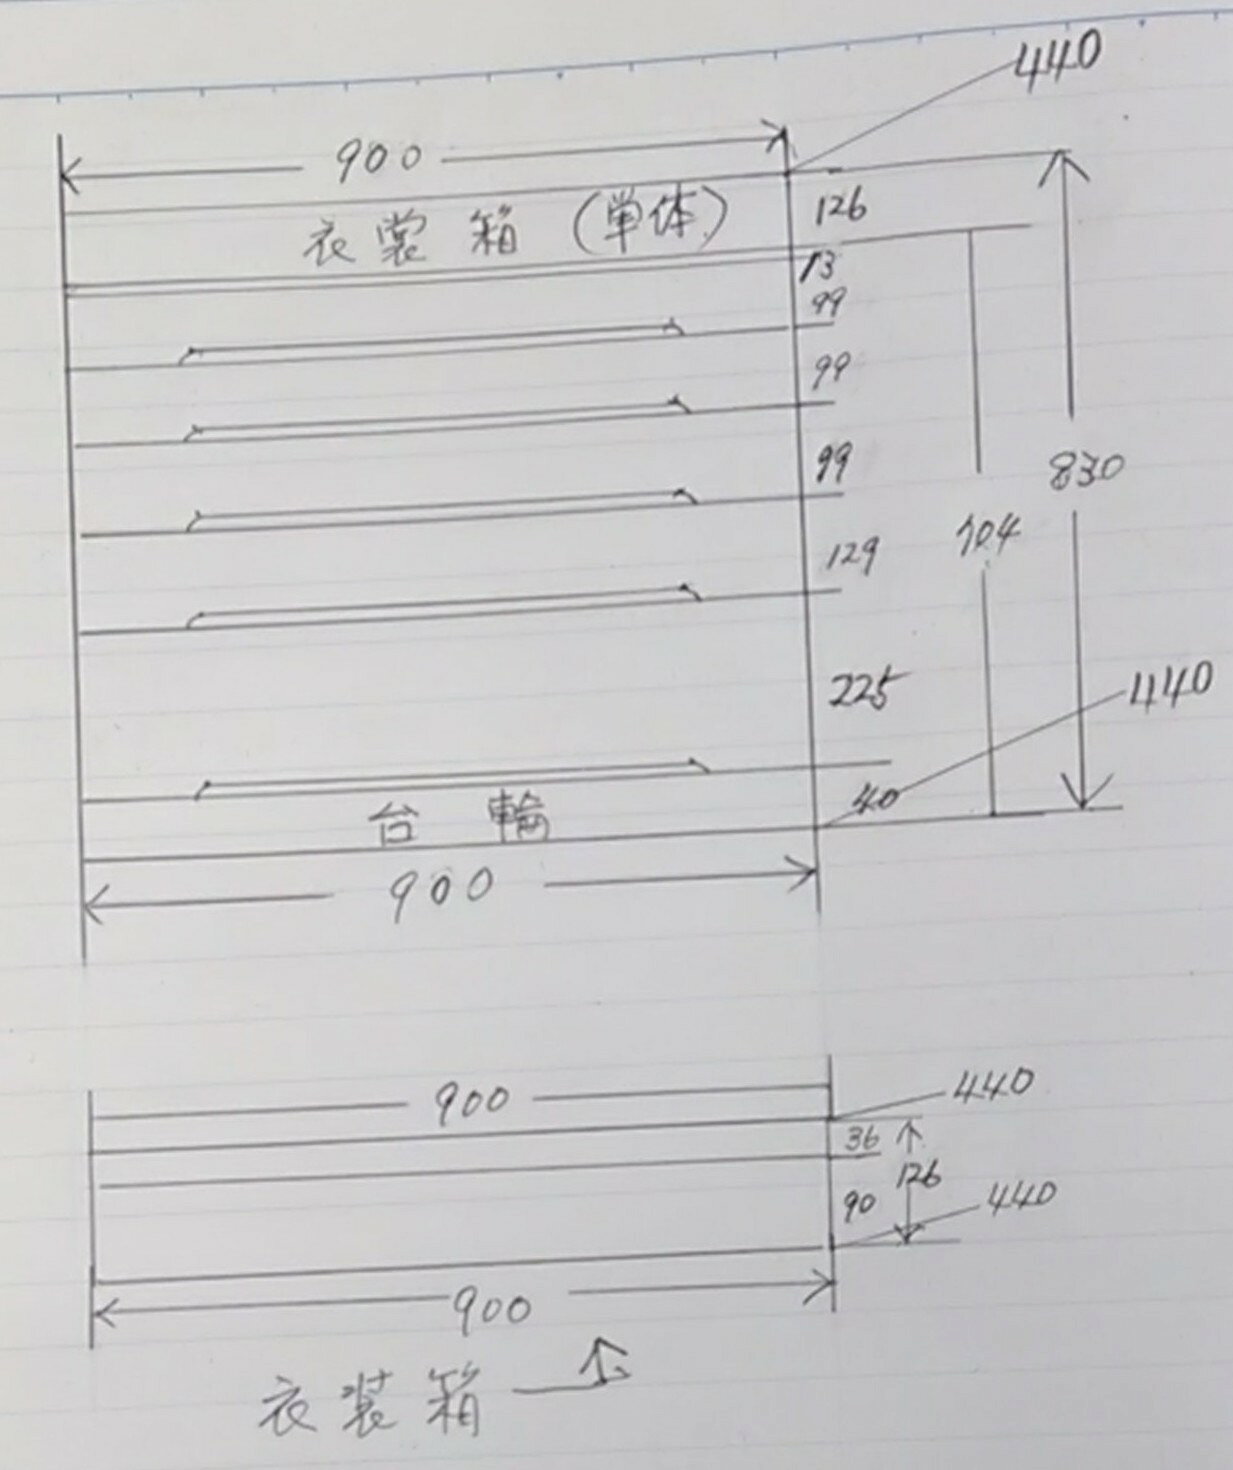 440
900
衣裳箱（単体）
126
13
99
99
99
830
129
704
225
440
40
台輪
900
900
440
36
126
90
440
900
衣装箱